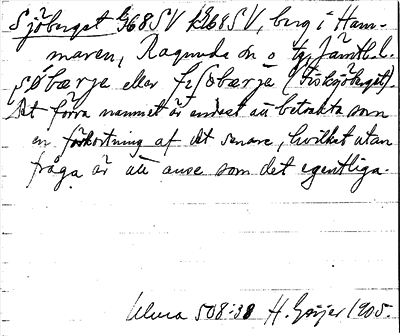 Sjöberget G68SV k268SV, berg i Ham-
maren, Ragunda sn o tg, Jämtl. l.
søbærje eller fɩsøbærjɛ (Fisksjöberget)
Det förra namnet är endast att betrakta som
en förkortning af det senare, hvilket utan
fråga är att anse som det egentliga.
Ulma 508:38 H. Geijer 1905.